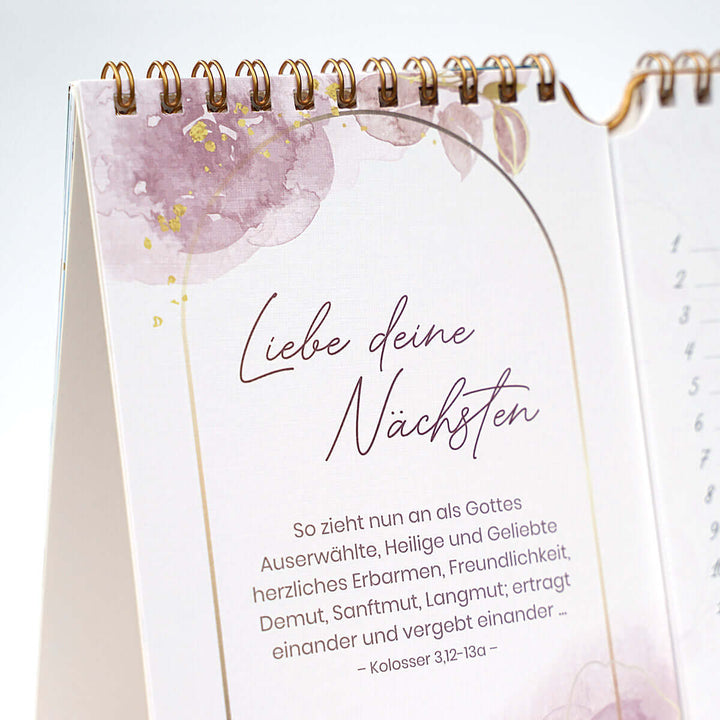 Liebe deine
Nächsten
So zieht nun an als Gottes
Auserwählte, Heilige und Geliebte
herzliches Erbarmen, Freundlichkeit,
Demut, Sanftmut, Langmut; ertragt
einander und vergebt einander ...
– Kolosser 3,12-13a –
1
2
3
4
5
6
7
8
9